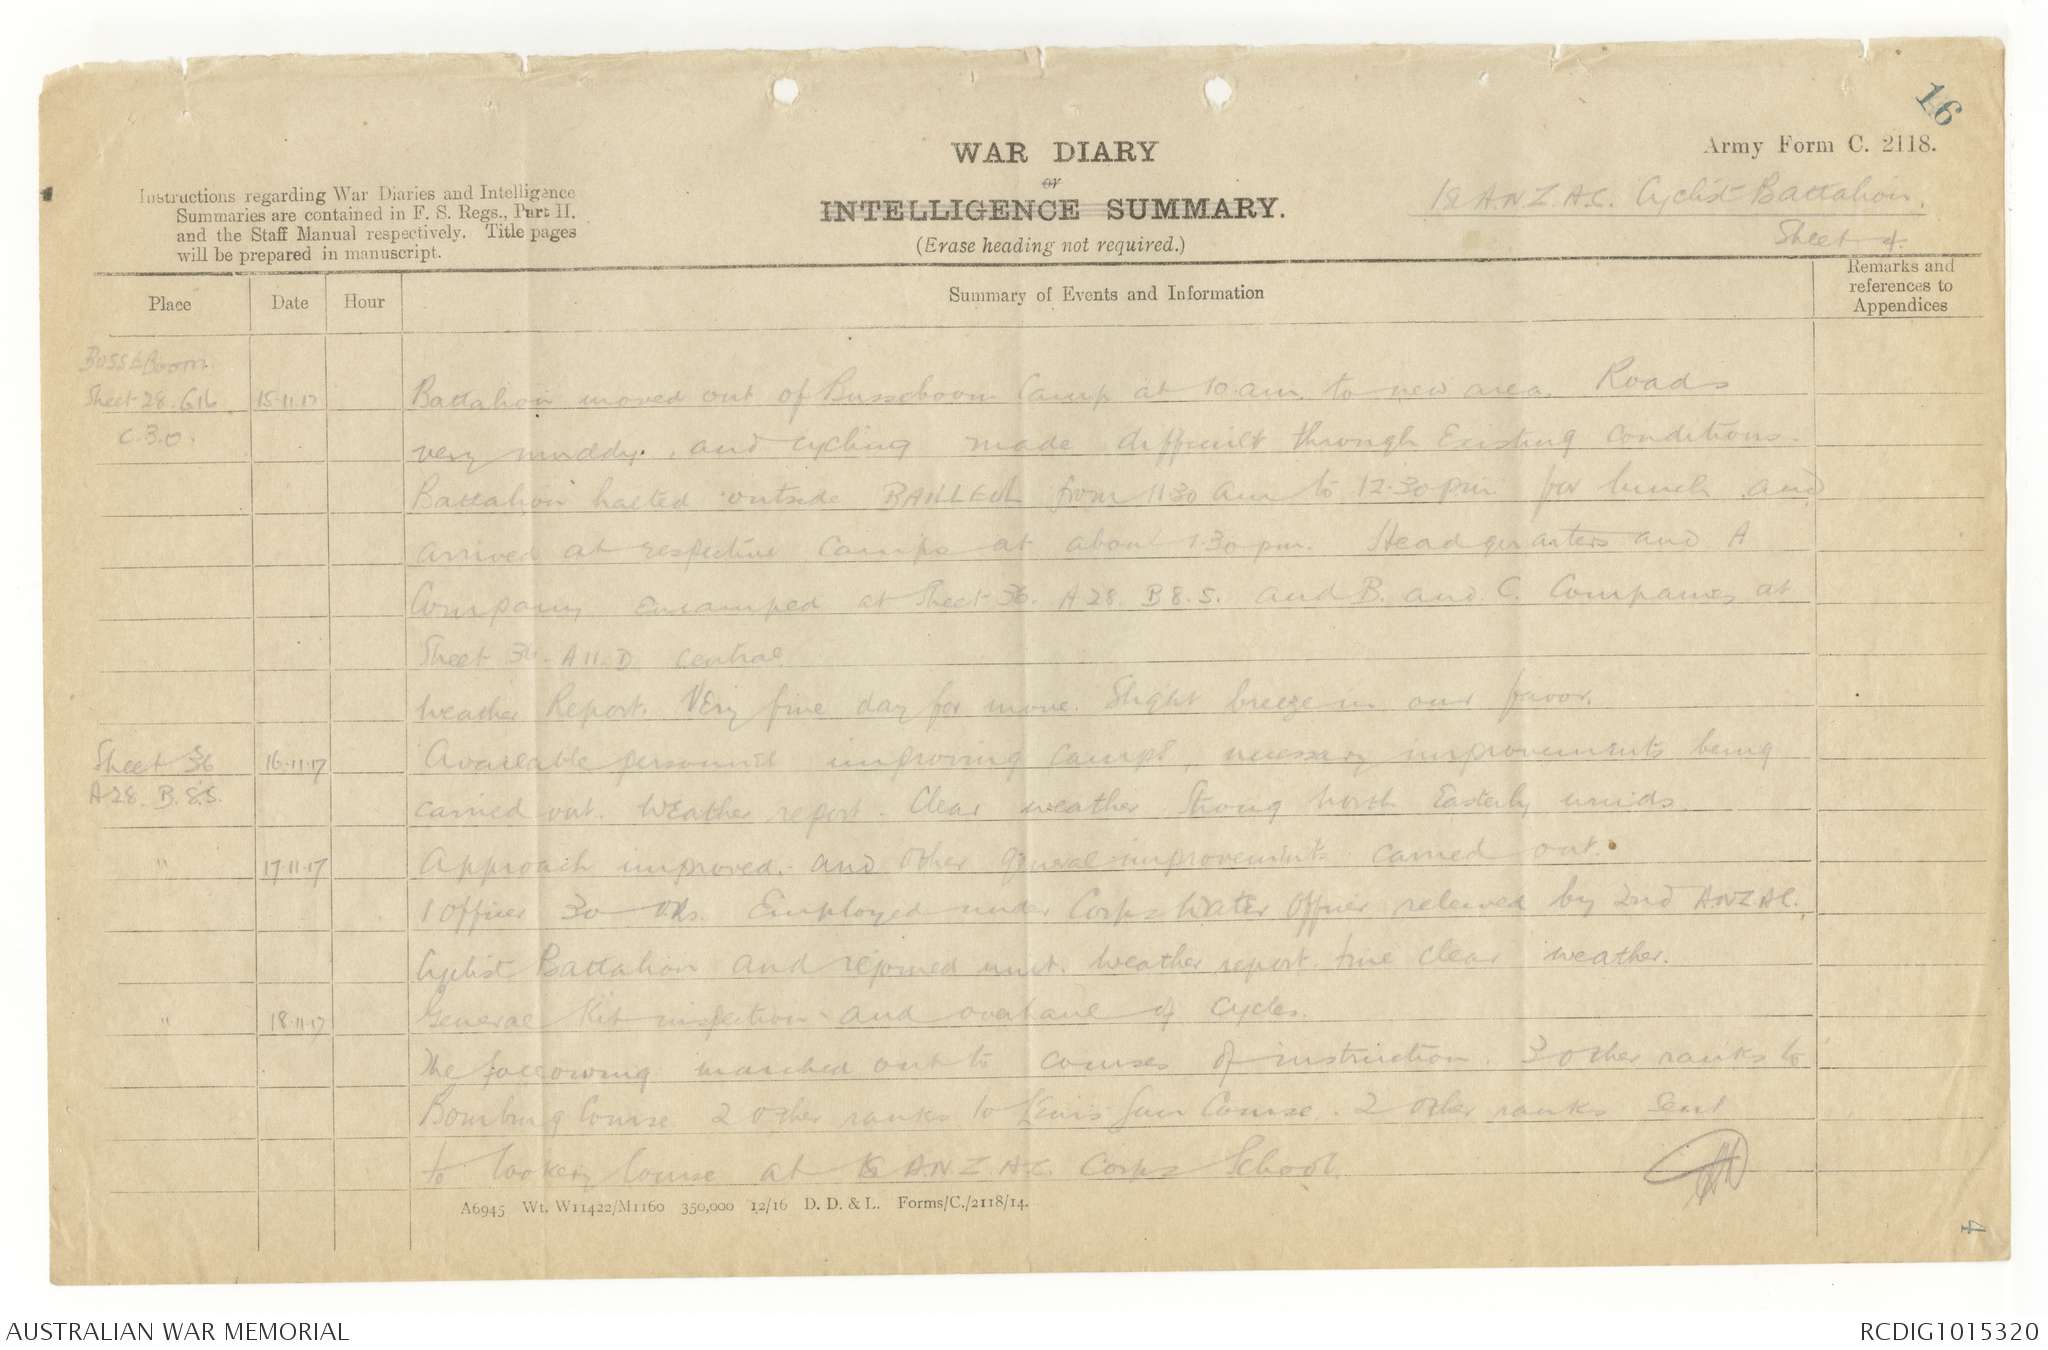 16
Army Form C. 2118.
WAR DIARY
or
INTELLIGENCE SUMMARY.
(Erase heading not required.)
Instructions regarding War Diaries and Intelligence
Summaries are contained in F. S. Regs., Part II.
and the Staff Manual respectively. Title pages
will be prepared in manuscript.
1st A.N.Z.A.C. Cyclist Battalion.
Sheet 4.
Place Date Hour Summary of Events and Information Remarks and references to Appendices
BUSSEBOOM.
Sheet 28. G16 15.11.17 Battalion moved out of Busseboom Camp at 10 am. to new area. Roads
C.3.0. very muddy. and cycling made difficult through Existing conditions.
Battalion halted outside BAILLEUL from 11.30 am to 12.30 pm for lunch and
arrived at respective camps at about 1.30 pm. Headquarters and A
Company encamped at Sheet 36. A28. B 8.5. and B. and C. Companies at
Sheet 36. A11.D central
Weather Report. Very fine day for move. Slight breeze in our favor.
Sheet 36 16.11.17 Available personnel improving camps, necessary improvements being
A28. B.8.5. carried out. Weather report. Clear weather Strong North Easterly winds.
" 17.11.17 Approach improved. and other general improvements carried out.
1 Officer 30 ORs. Employed under Corps Water Officer relieved by 2nd A.N.Z.A.C.
Cyclist Battalion and rejoined unit. Weather report. fine clear weather.
" 18.11.17 General Kit inspection and overhaul of cycles.
The following marched out to courses of instruction. 3 other ranks to
Bombing Course 2 other ranks to Lewis Gun Course. 2 other ranks sent
to Cookery Course at 1st A.N.Z.A.C. Corps School.
A6945 Wt. W11422/M1160 350,000 12/16 D. D. & L. Forms/C./2118/14.
4
AUSTRALIAN WAR MEMORIAL
RCDIG1015320